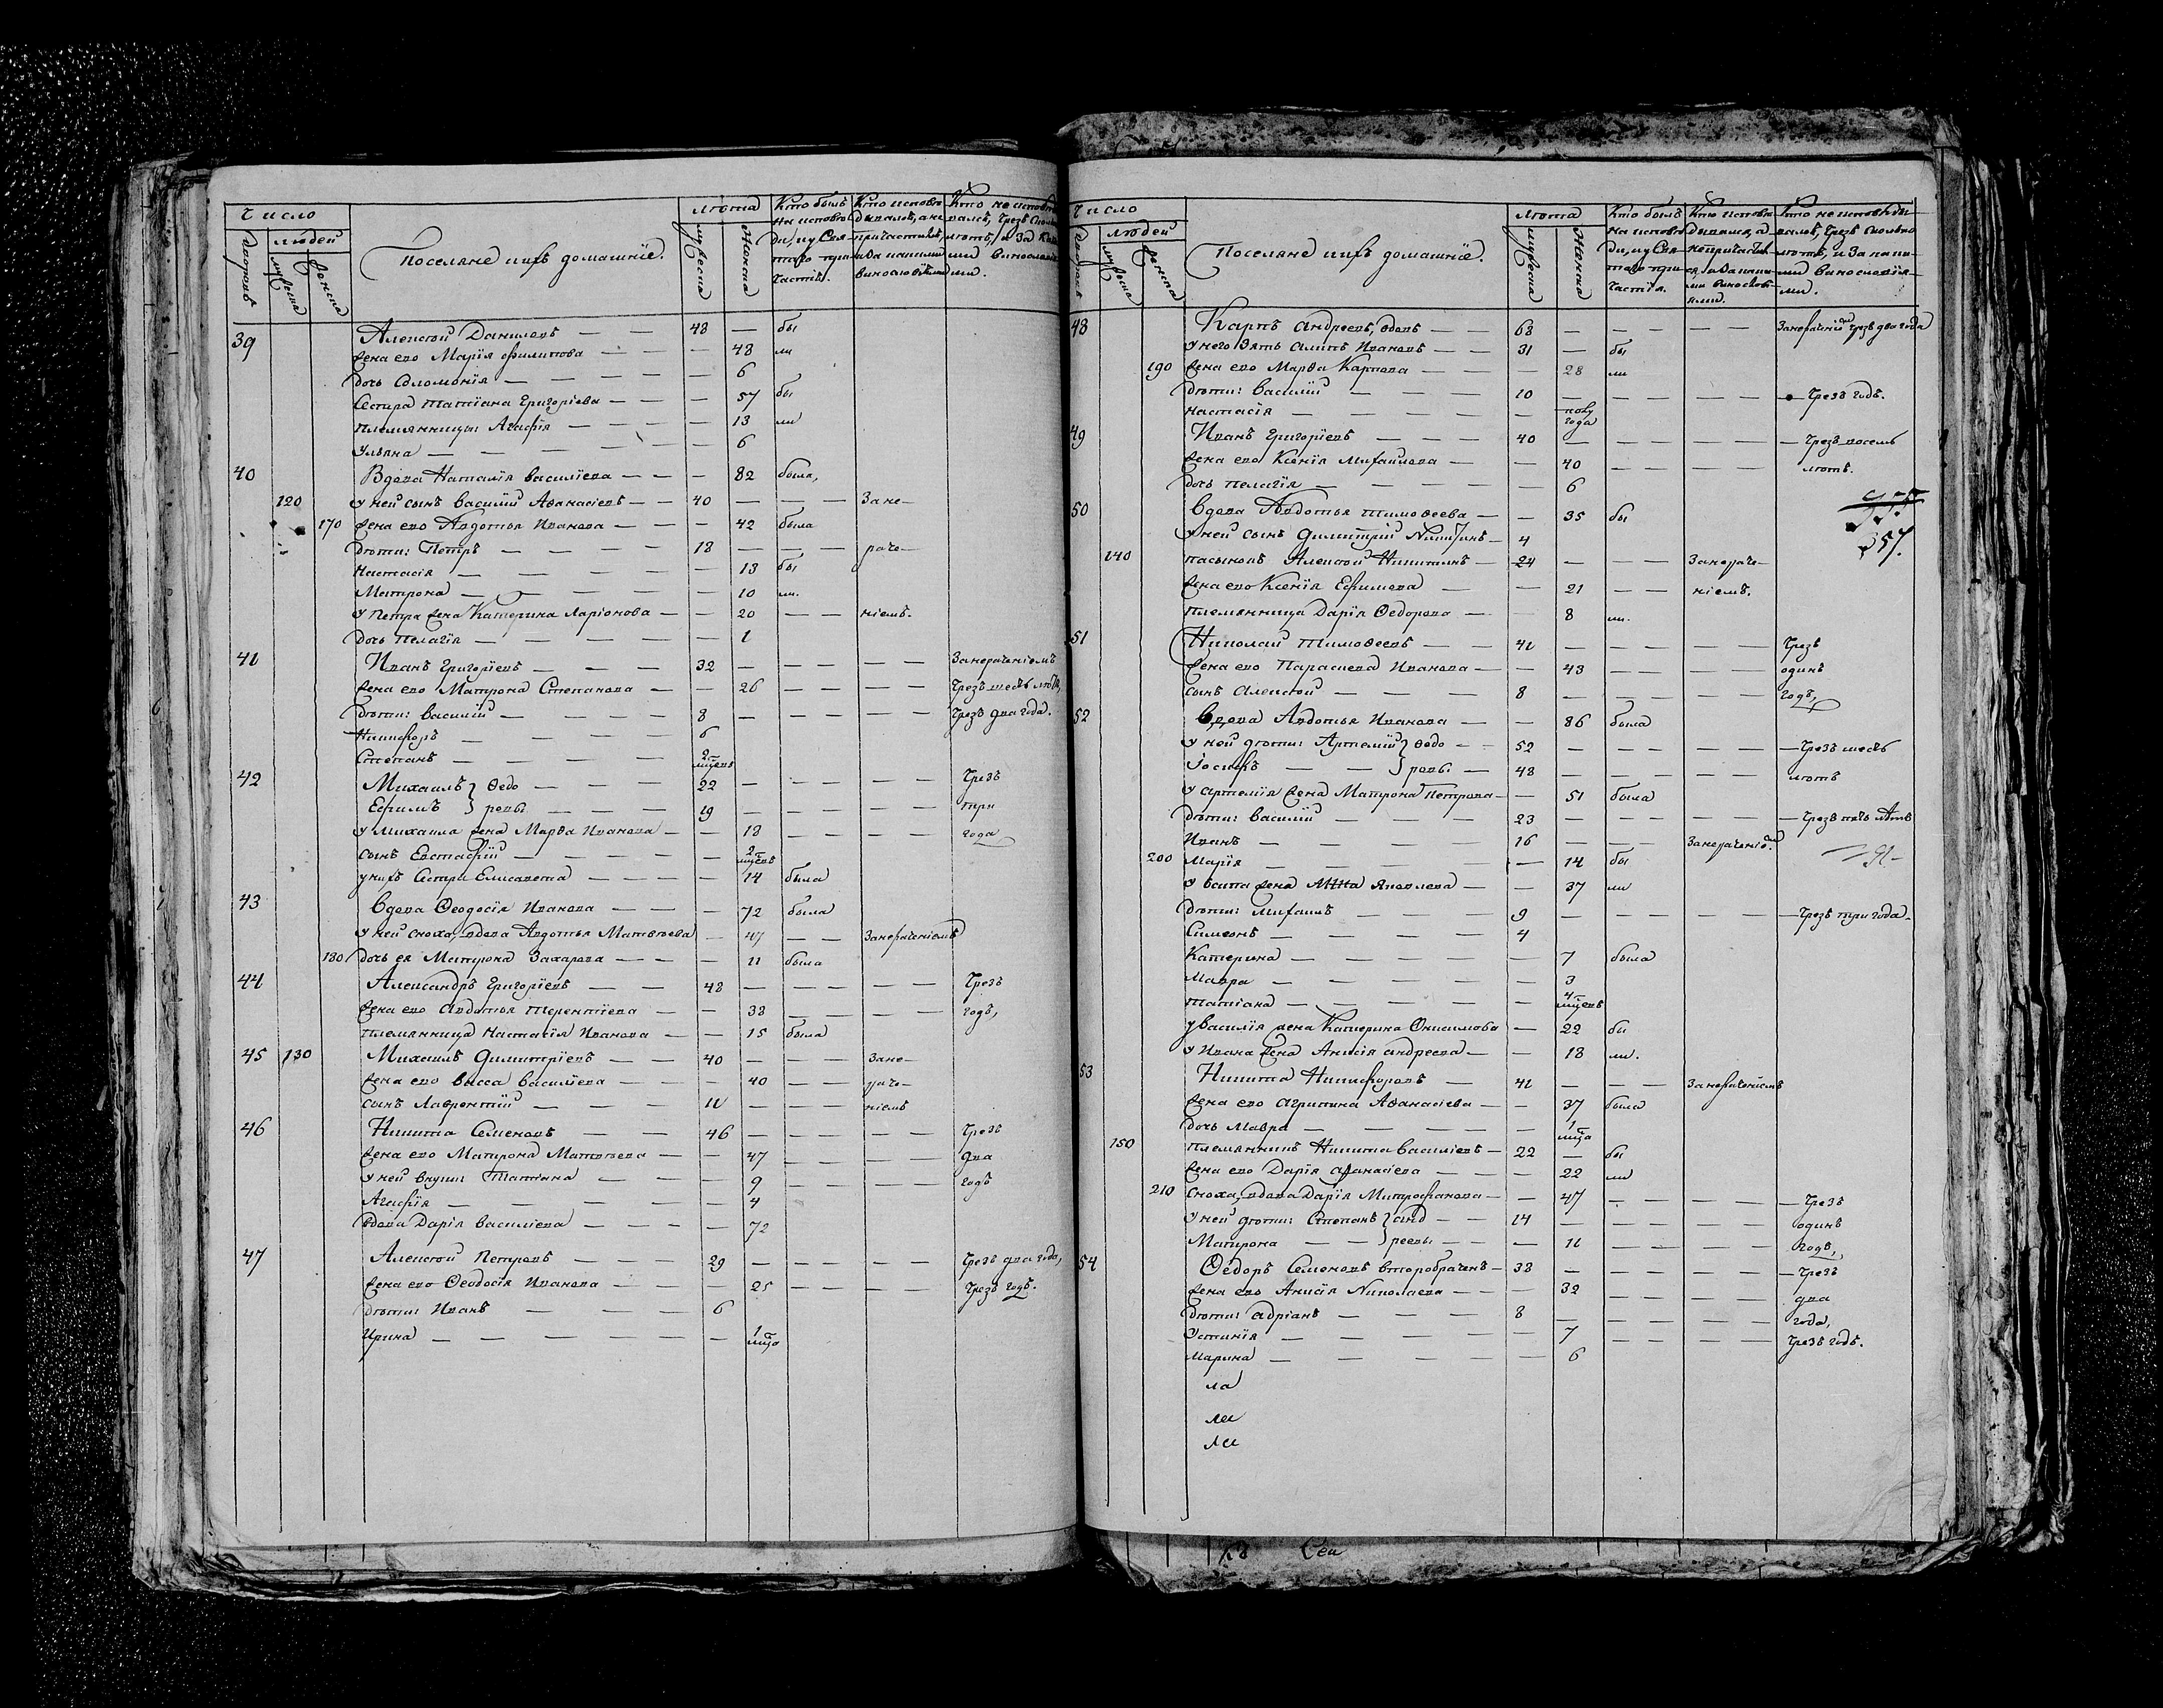 Число
людей
дворовъ
мужеска
женска
Поселяне ихъ домашніе.
лѣта
мужеска
женска
Кто былъ на исповѣди, и у Святаго причастія.
39 Алексѣй Даниловъ — — 48 — бы
жена его Марія Филипова — — — 48 ли
дочь Соломонія — — — — — 6
Сестра Татіана Григоріева — — — 57 бы
племянницы Агафія — — — — 13 ли
Ульяна — — — — — 6
40 Вдова Наталія Василіева — — — 82 была,
120 у ней сынъ Василій Аѳанасіевъ — — 40 — — — Зане—
170 жена его Авдотья Иванова — — — 42 была
дѣти: Петръ — — — — 18 — — — раче—
Настасія — — — — — 13 бы
Матрона — — — — — 10 ли.
у Петра жена Катерина Ларіонова — — 20 — — ніемъ.
дочь Пелагія — — — — — 1
41 Иванъ Григоріевъ — — — 32 — — — — — Занераченіемъ
жена его Матрона Степанова — — 26 — — — — Чрезъ шесть лѣтъ,
дѣти: Василій — — — — 8 — — — — — Чрезъ два года.
Никифоръ — — — — 6
Степанъ — — — — 2 мцевъ
42 Михаилъ } Ѳедо — — — 22 — — — — — Чрезъ
Ефимъ } ровы — — — 19 — — — — — три
у Михаила жена Марѳа Иванова — — 18 — — — — года
сынъ Евстафій — — — — — 2 мцевъ
у нихъ Сестра Елисавета — — — — 14 была
43 Вдова Ѳеодосія Иванова — — — 72 была
у ней сноха, вдова Авдотья Матвѣева — 47 — — Занераченіемъ
180 дочь ея Матрона Захарова — — — 11 была
44 Александръ Григоріевъ — — 48 — — — — — Чрезъ
жена его Авдотья Терентіева — — 38 — — — — годъ,
племянница Настасія Иванова — — 15 была
45 130 Михаилъ Димитріевъ — — 40 — — — Зане—
жена его Васса Василіева — — — 40 — — раче—
сынъ Лаврентій — — — 11 — — — ніемъ
46 Никита Семеновъ — — 46 — — — — — Чрезъ
жена его Матрона Матвѣева — — 47 — — — — два
у ней внуки Татіана — — — 9 — — — — годъ
Агафія — — — — 4
вдова Дарія Василіева — — — — 72
47 Алексѣй Петровъ — — 29 — — — — — Чрезъ два года,
жена его Ѳеодосія Иванова — — 25 — — — — Чрезъ годъ.
дѣти: Иванъ — — — — 6
Ирина — — — — — — 1 мца
Число
людей
дворовъ
мужеска
женска
Поселяне ихъ домашніе.
лѣта
мужеска
женска
Кто былъ на исповѣди, и у Святаго причастія.
48 Карпъ Андреевъ, вдовъ — 68 — — — — Занераченіемъ Чрезъ два года
у него зять Антипъ Ивановъ — — 31 — бы
190 жена его Марѳа Карпова — — — 28 ли
дѣти: Василій — — — 10 — — — — — Чрезъ годъ.
Настасія — — — — — полу года
49 Иванъ Григоріевъ — — — 40 — — — — — Чрезъ восемь
жена его Ксенія Михайлова — — 40 — — — — лѣтъ.
дочь Пелагія — — — — — 6
50 Вдова Авдотья Тимоѳеева — — 35 бы
у ней сынъ Димитрій Никитинъ — 4
140 пасынокъ Алексѣй Никитинъ — 24 — — — Занераче—
жена его Ксенія Ефимова — — 21 — — ніемъ.
257.
племянница Дарія Ѳедорова — — 8 ли.
51 Николай Тимоѳеевъ — — 41 — — — — — Чрезъ
жена его Параскева Иванова — — 43 — — — — одинъ
сынъ Алексѣй — — — 8 — — — — — годъ,
52 Вдова Авдотья Иванова — — 86 была
у ней дѣти: Артемій } Ѳедо — — 52 — — — — — Чрезъ шесть
Іосифъ — — } ровы — 48 — — — — — лѣтъ
у Артемія жена Матрона Петрова — — 51 была
дѣти: Василій — — — — 23 — — — — — Чрезъ пять лѣтъ
Иванъ — — — — — 16 — — — Занераченіемъ.
200 Марія — — — — — 14 бы
у Осипа жена Анна Яковлева — — 37 ли
дѣти: Михаилъ — — — — 9 — — — — — Чрезъ три года.
Симеонъ — — — — — 4
Катерина — — — — — 7 была
Мавра — — — — — 3
Татіана — — — — — 4 мцевъ
у Василія жена Катерина Онисимова — 22 бы
у Ивана жена Анисія Андреева — — 18 ли.
53 Никита Никифоровъ — 41 — — — Занераченіемъ
жена его Агрипина Аѳанасіева — — 37 была
дочь Мавра — — — — — 1 мца
150 племянникъ Никита Василіевъ — 22 — бы
жена его Дарія Афанасіева — — — 22 ли
210 сноха, вдова Дарія Митрофанова — — 47 — — — — Чрезъ
у ней дѣти: Степанъ } Анд — — 14 — — — — — одинъ
Матрона — — } реевы — — — 11 — — — — годъ,
54 Ѳедоръ Семеновъ второбраченъ — 38 — — — — — Чрезъ
жена его Анисія Николаева — — — 32 — — — — два
дѣти: Адріанъ — — — 8 — — — — — года,
Устинія — — — — — 7 — — — — Чрезъ годъ.
Марина — — — — — 6
ла
ли
ли